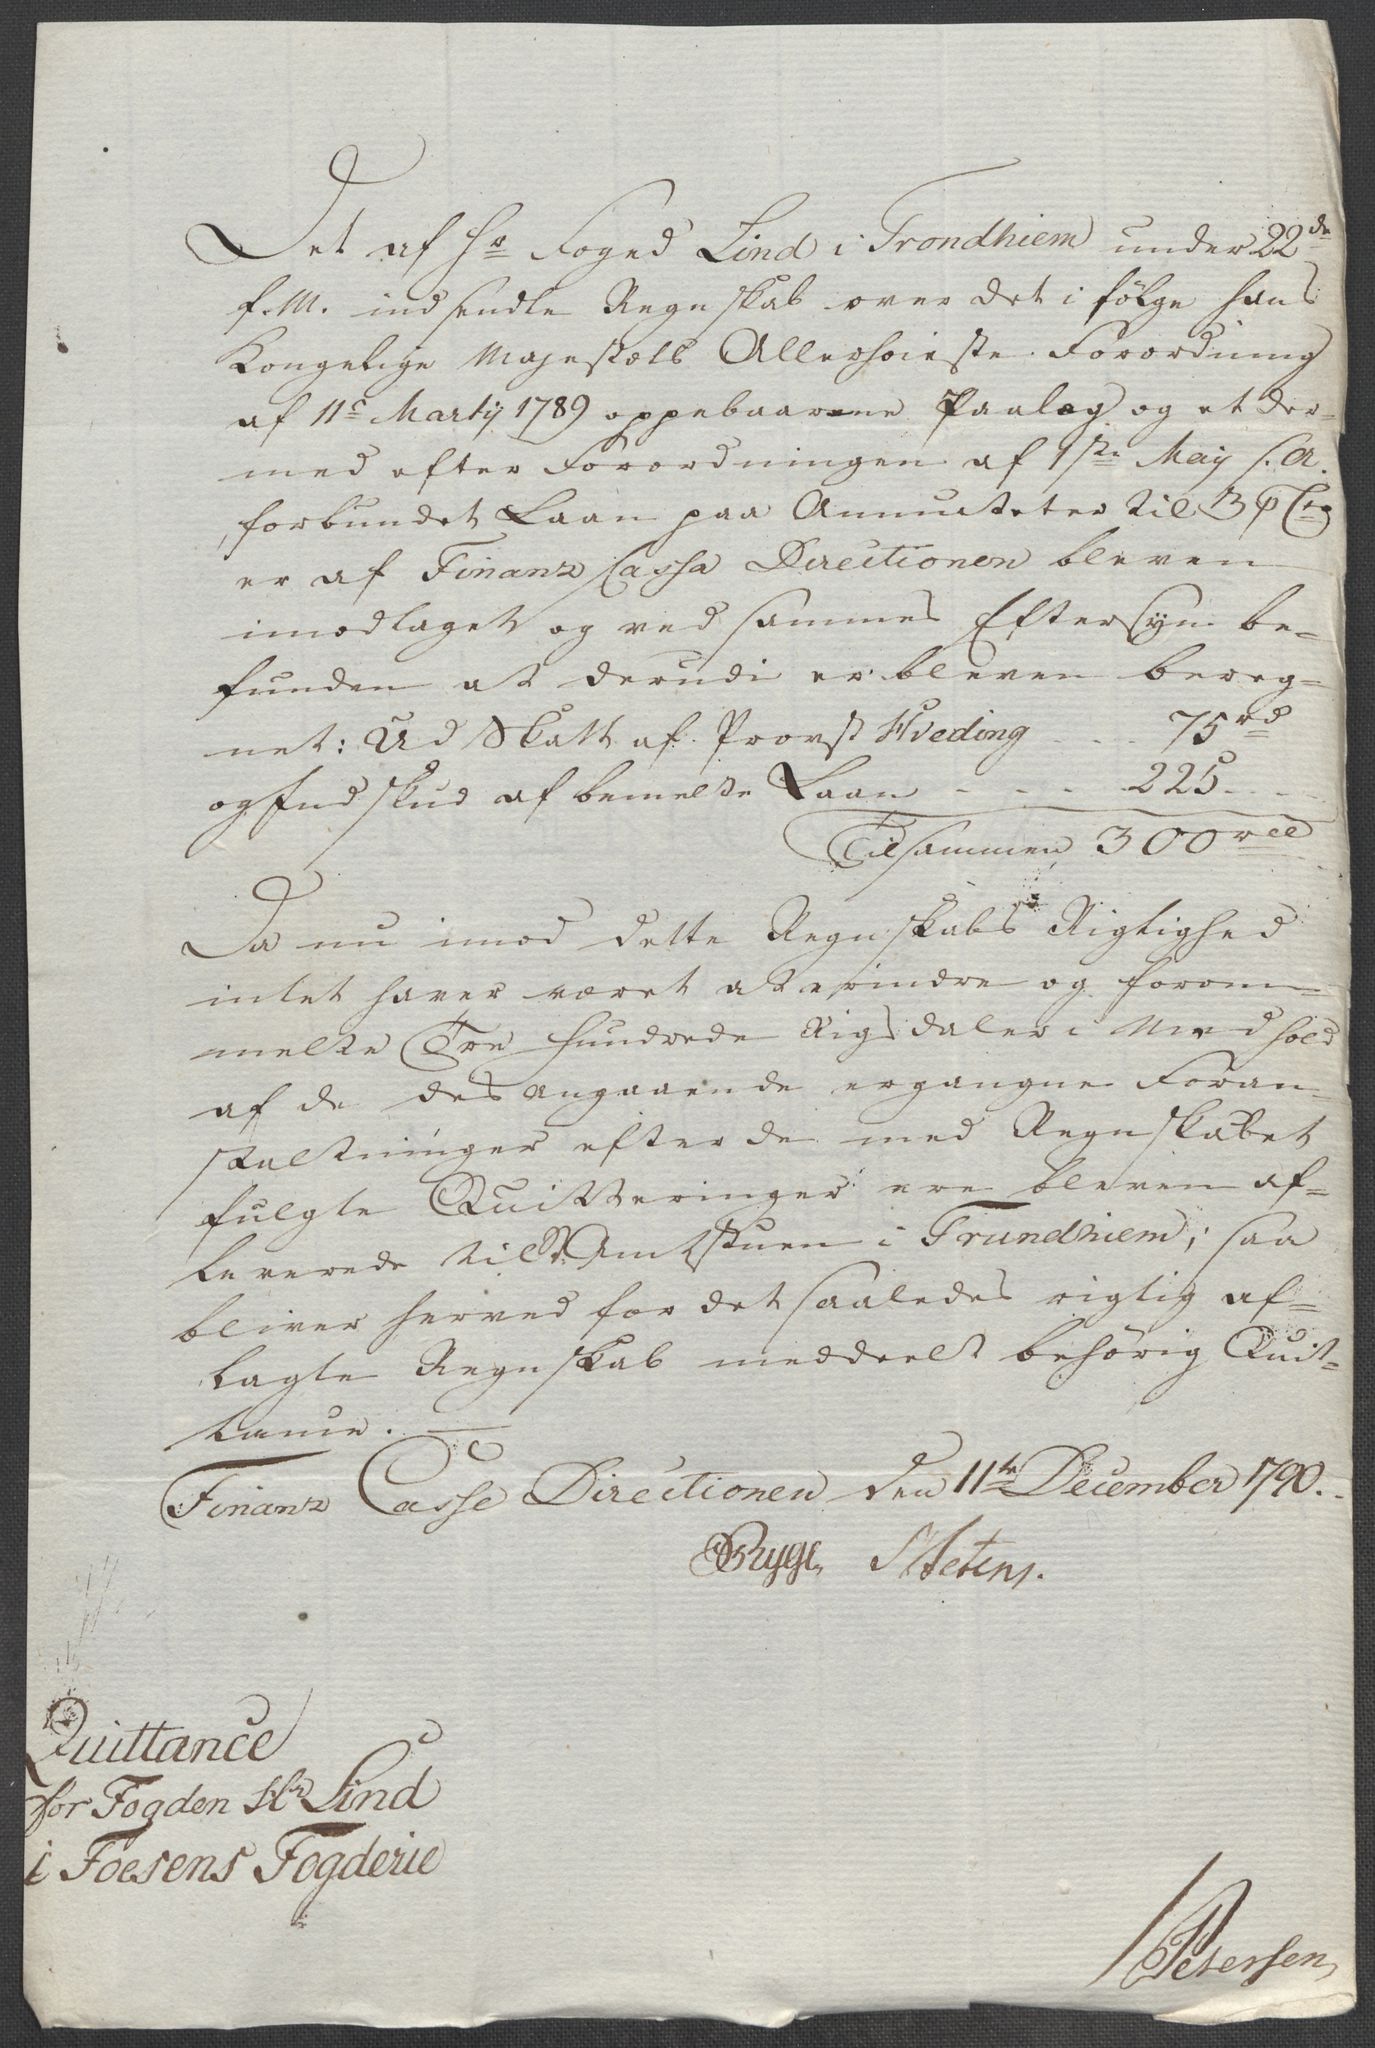 Det af Hr Foged Lind i Trondhiem under 22de
f. M. indsendte Regnskab over det i følge Hans
Kongelige Majestæts Allerhøieste Forordning
af 11te Martij 1789 oppebaarne Paalæg og et der-
med efter Forordningen af 1ste Maij s. A.
forbundet Laan paa Annuiteter til 3 p Ctо
er af Finanz Cassa Directionen bleven
imodtaget og ved sammes Eftersyn be-
funden at derudi er bleven bereg-
net: Ud Skatt af Provst Hveding - - - 75 rd
og Indskud af bemelte Laan - - - 225 - -
Tilsammen 300 rd
Da nu imod dette Regnskabs Rigtighed
intet haver været at erindre og forom-
melte Tre Hundrede Rigsdaler i Medhold
af de des angaaende ergangne Foran-
staltninger efter de med Regnskabet
fulgte Quitteringer ere bleven af-
leverede til Amtstuen i Trundhiem; saa
bliver herved for det saaledes rigtig af-
lagte Regnskab meddeelt behörig Quit-
tance.
Finanz Casse Directionen den 11te December 1790.
Petersen
Quittance
for Fogden Hr Lind
i Foesens Fogderie